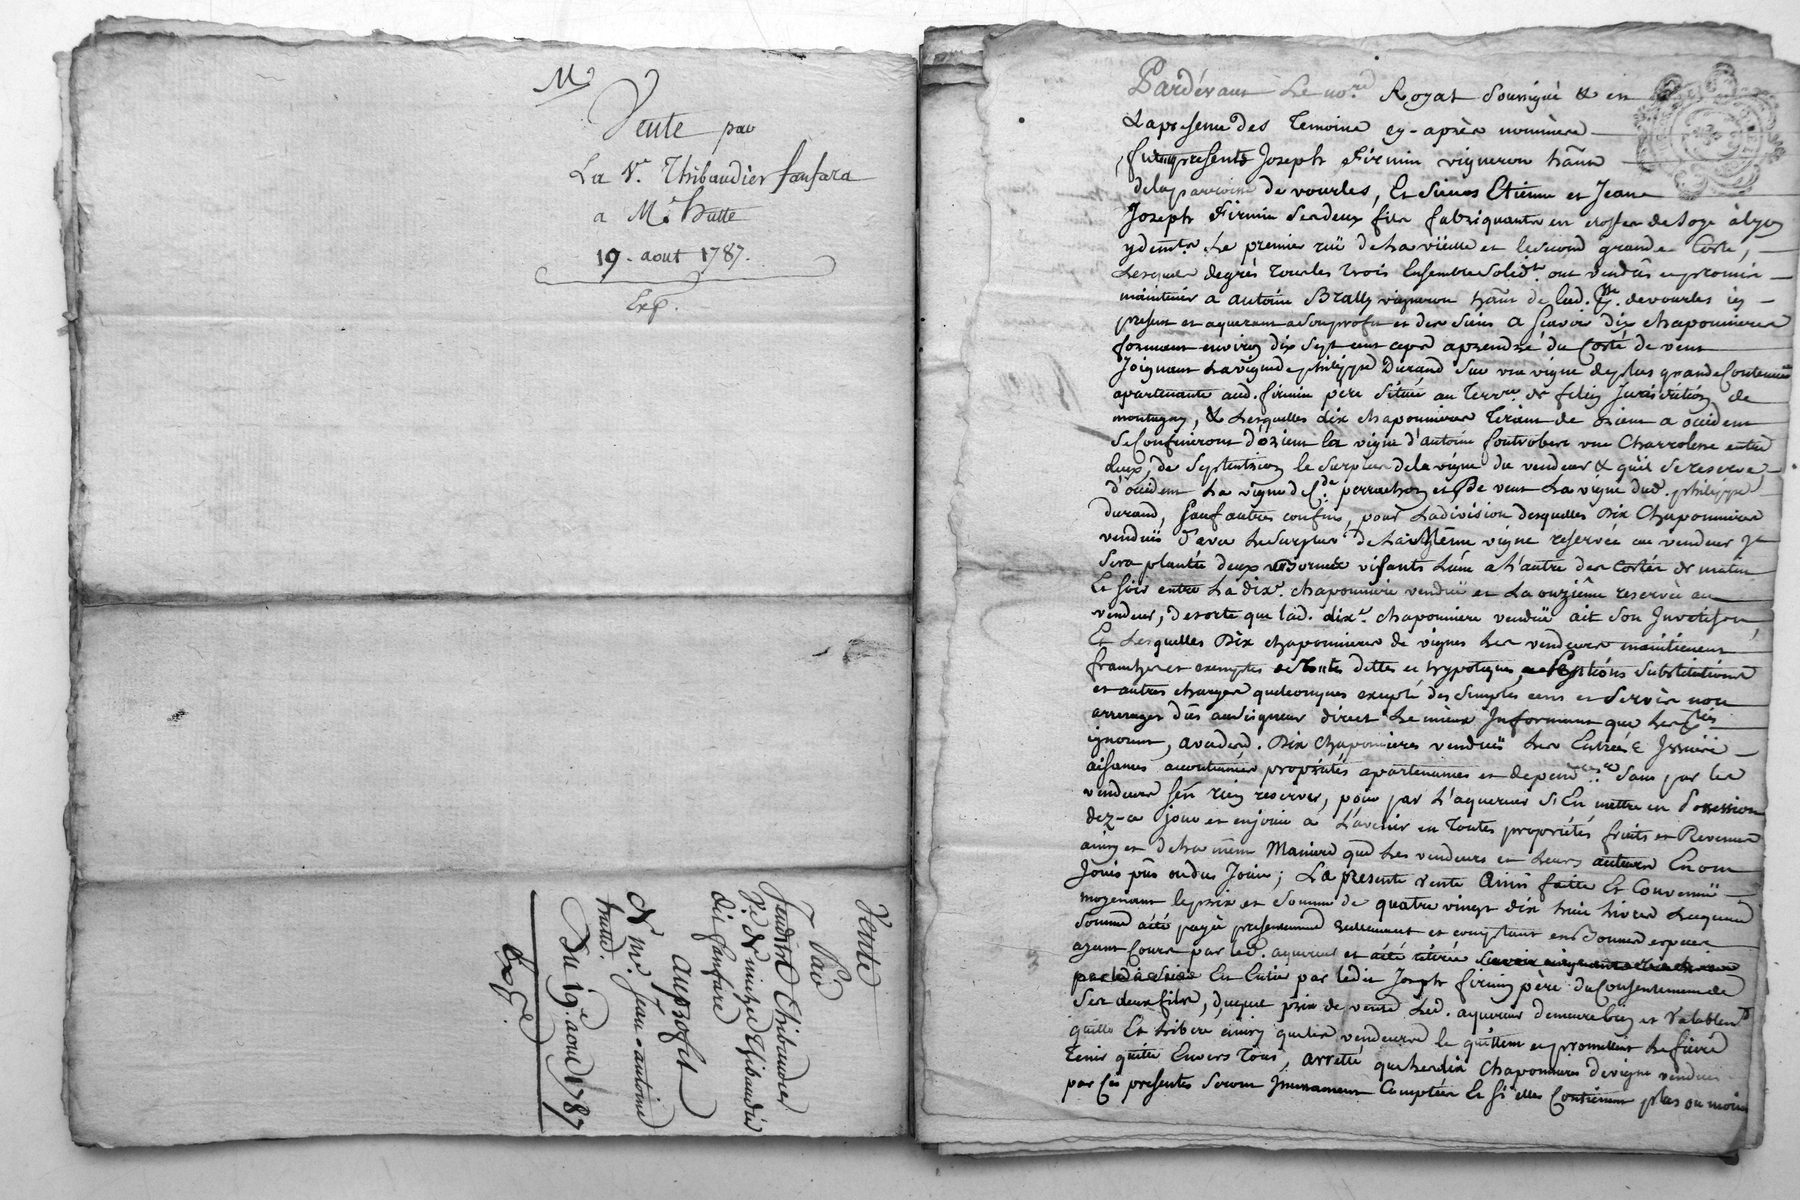 Mr
Vente par
La Ve. Thibaudier fanfara
a Mr. hutte
19. aout 1787.
Exp.
Vente
Par
Claudine Thibaudier
Ve. De michel Thibaudier
dit fanfare
au profit
De Me. Jean-antoine
hutte.
Du 19e. aout 1787
Exp.
Pardevant Le nore. Royal Soussigné & en
La presence des Temoins cy-après nommés
furent presents Joseph Firmin vigneron hant.
de la parroisse de vourles, Et Sieurs Etienne et Jean
Joseph Firmin Ses deux fils fabriquants en etoffes de Soye à lyon
y demts. Le premier ruë de la vieille et le second grande Coste,
Lesquels de grés tous les trois Ensemble Solidt. ont vendus et promis
maintenir a antoine Brally vigneron hant. de lad. psse. de vourles icy
present et aquerant a Son profit et des Siens a Scavoir dix chaponnieres
formant environ dix Sept cent ceps a prendre du Costé de vent
Joignant La vigne de philippe Durand Sur une vigne de plus grande Contenue
apartenante aud. firmin père Située au Terre. de Jurisdiction de
montagny, & Lesquelles dix chaponnieres Tirant de orient a occident
Se Confineront d'orient la vigne d'antoine une Charroliere entre
deux, de Septentrion le Surplus de la vigne du vendeur & qu'il Se reserve
d'occident La vigne de Sr. perrachon et De vent La vigne dud. philippe
durand, Sauf autres confins, pour La division desquelles Dix Chaponnieres
venduës d'avec Le Surplus de La vigne reservée au vendeur
Sera plantée deux visants L'une a L'autre des Costés de matin
Et Soir entre La dixe. chaponniere venduë et La onzième reservée au
vendeur, de sorte que lad. dixe. chaponniere venduë ait Son
Et Lesquelles Dix chaponnieres de vignes Les vendeurs maintiennent
franches et exemptes de toutes dettes et hypoteques, Substitutions
et autres charges quelconques excepté des Simples cens et Servis non
arreragés dûs au Seigneur direct Le mieux Informant que Les
ignorent, avec lesd. Dix chaponnieres venduës Les Entrées & Issues
aisances accoutumées propriétés apartenances et dependces. Sans par les
vendeurs S'en rien reserver, pour par L'aquereur S'En mettre en Possession
dez-ce jour et en jouir a L'avenir en Toutes propriétés fruits et Revenus
ainsy et de La même Maniere que Les vendeurs et Leurs auteurs En ont
Jouis pûs ou dus Jouir; La presente vente Ainsi faitte Et Convenuë
moyenant le prix et Somme de quatre vingt dix huit Livres Laquelle
Somme a été payée presentement reellement et comptant en Bonnes especes
ayant Cours par led. aquereur et a été retirée
En Entier par ledit Joseph firmin père du Consentement de
Ses deux fils, duquel prix de vente Led. aquereur demeure bien et Valablemt.
quitte Et Libere ainsy que les vendeurs le quittent et promettent Le faire
Tenir quitte Envers Tous, arretté que Les dix Chaponnieres de vigne vendues
par Ces presentes Seront Comptées Et Si elles Contiennent plus ou moins